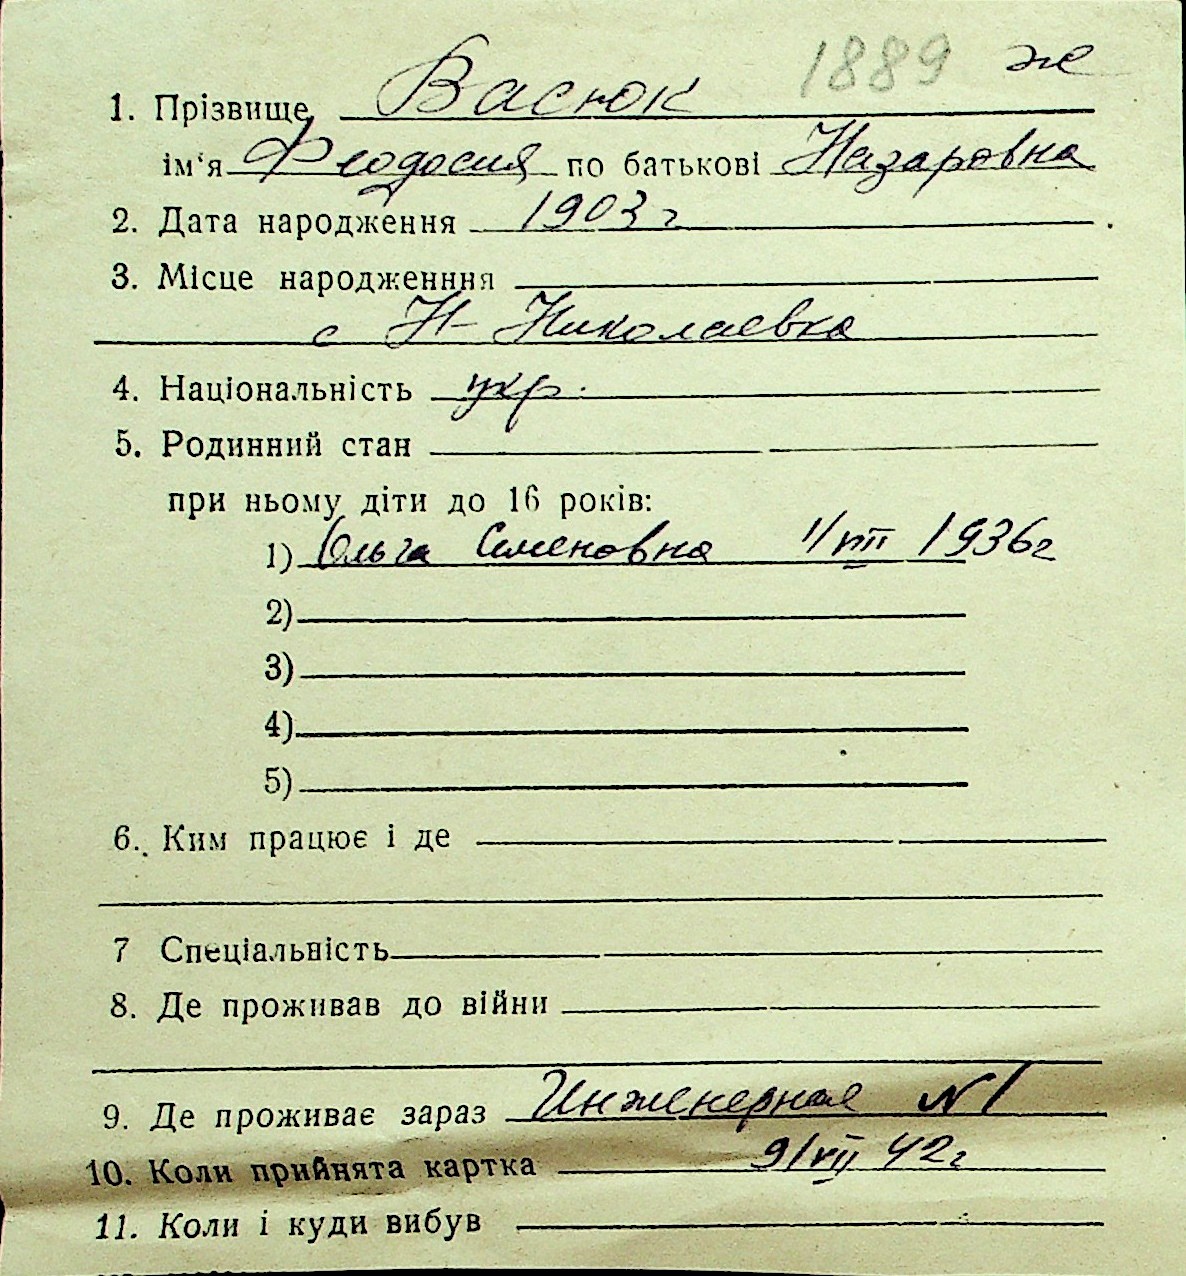 1889 же
1. Прізвище Васюк
ім‘я Феодосия по батькові Назаровна
2. Дата народження 1903 г
3. Місце народженння
с Н-Николаевка
4. Національність укр.
5. Родинний стан
при ньому діти до 16 років:
1) Ольга Семеновна 1/VIII 1936 г
2)
3)
4)
5)
6. Ким працює і де
7 Спеціальність
8. Де проживав до війни
9. Де проживає зараз Инженерная № 1
10. Коли прийнята картка 9/VII 42 г
11. Коли і куди вибув